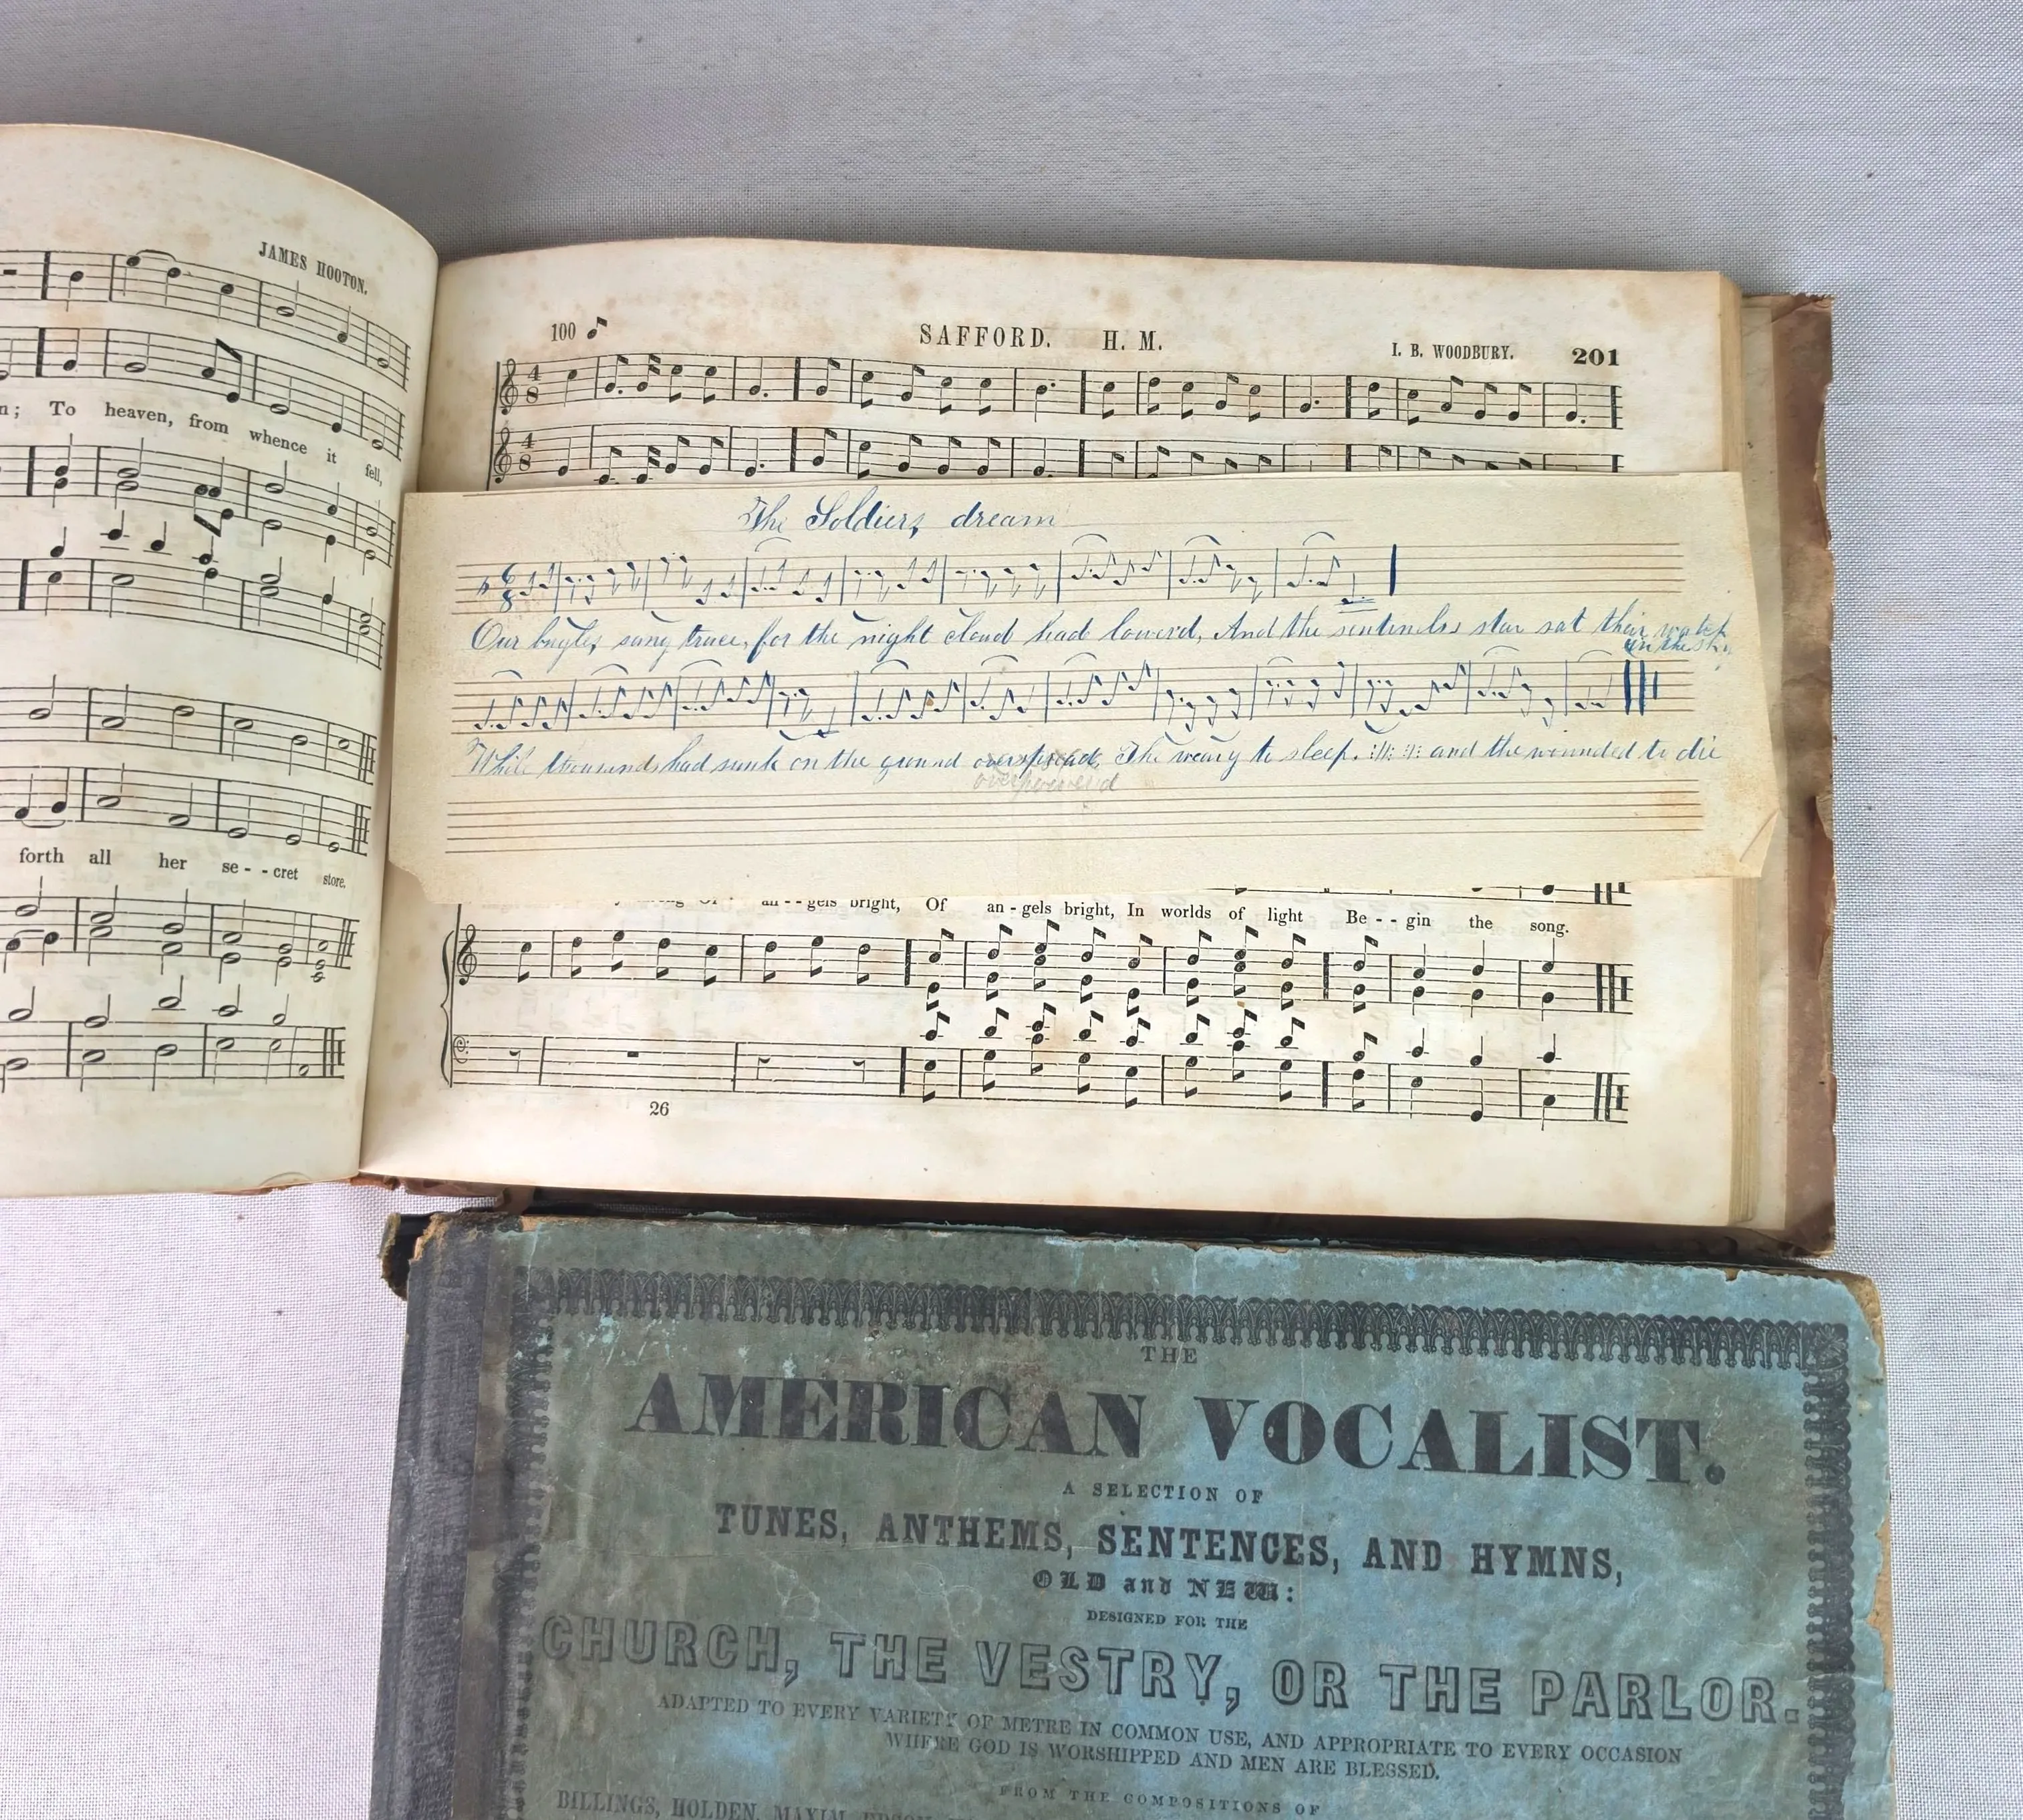 JAMES HOOTON.
n; To heaven, from whence it fell,
forth all her se - - cret store.
100 SAFFORD. H. M. I. B. WOODBURY. 201
4 8
4 8
The Soldiers dream
6 8
Our bugles sang truce, for the night cloud had lowerd, And the sentinels star sat their watch
in the sky
While thousands had sunk on the ground overspread, The weary to sleep. :||: :||: and the wounded to die
overpower'd
an - - gels bright, Of an - gels bright, In worlds of light Be - - gin the song.
26
THE
AMERICAN VOCALIST.
A SELECTION OF
TUNES, ANTHEMS, SENTENCES, AND HYMNS,
OLD and NEW:
DESIGNED FOR THE
CHURCH, THE VESTRY, OR THE PARLOR.
ADAPTED TO EVERY VARIETY OF METRE IN COMMON USE, AND APPROPRIATE TO EVERY OCCASION
WHERE GOD IS WORSHIPPED AND MEN ARE BLESSED.
FROM THE COMPOSITIONS OF
BILLINGS, HOLDEN, MAXIM, EDSON,